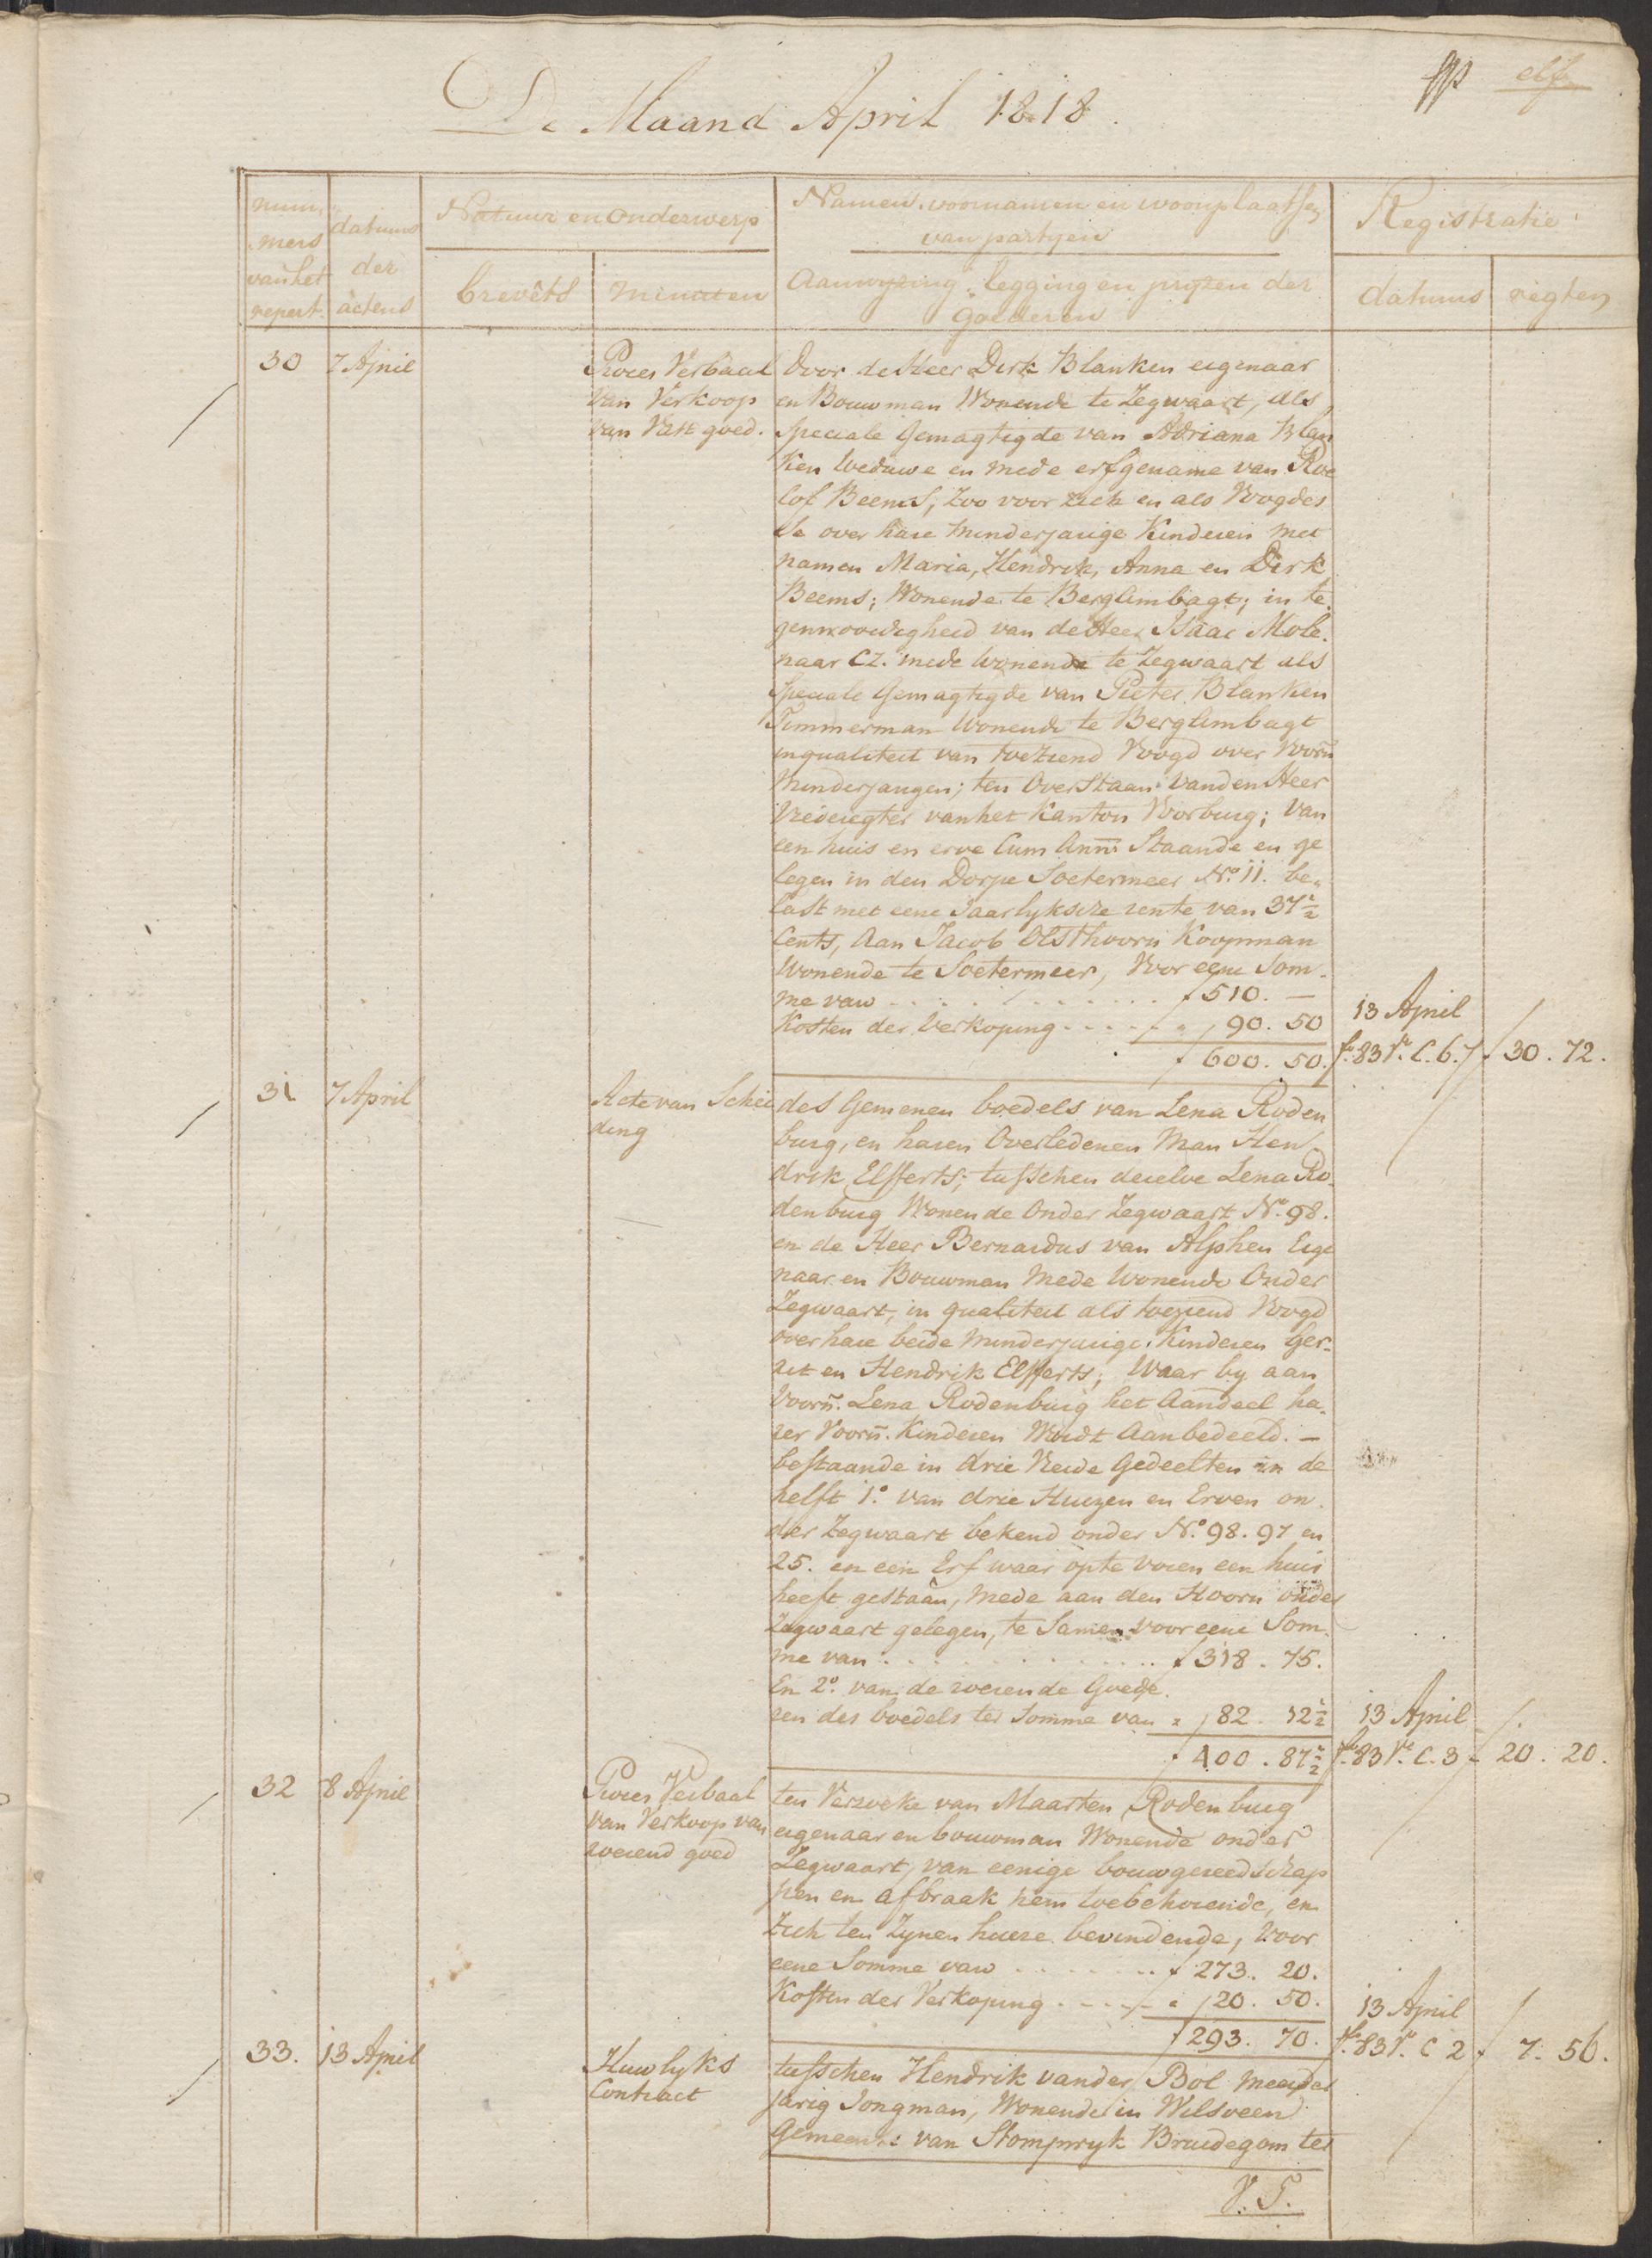 elf
De Maand April 1818.
num,
mers
van het
repert.
datums
der
actens
Natuur en Onderwerp
brevêts
minuten
Namen, voornamen en woonplaatsen
van partyen
Aanwyzing, legging en pryzen der
Goederen
Registratie
datums
regten
30
7 April
Proces Verbaal
van Verkoop
van Vast goed.
Door de Heer Dirk Blanken eigenaar
en Bouwman Wonende te Zegwaart, als
Speciale Gemagtigde van Adriana Blan
ken Weduwe en mede erfgename van Roe
lof Beems, Zoo voor zich en als Voogdes
se over hare minderjarige Kinderen met
namen Maria, Hendrik, Anna en Dirk
Beems; Wonende te Berglimbagt; in te
genwoordigheid van de Heer Isaac Mole.
naar Cz. mede Wonende te Zegwaart als
Speciale Gemagtigde van Pieter Blanken
Timmerman Wonende te Berglimbagt
inqualiteit van toeziend Voogd over Voorn̄
Minderjarigen; ten Overstaan van den Heer
Vrederegter van het Kanton Voorburg; Van
een huis en erve Cum Ann: Staande en ge
legen in den Dorpe Soetermeer No. 11. be„
last met eene Jaarlyksche rente van 37½
Cents, Aan Jacob Olsthoorn Koopman
Wonende te Soetermeer, Voor eene Som.
me van . . . . . . . . . . . f 510. —
Kosten der Verkoping - - - - - „ 90. 50
f 600. 50.
13 April
fo. 83 Vo. C. 6. 7
f 30. 72.
31
7 April
Acte van Schei
ding
des Gemenen boedels van Lena Roden
burg, en haren Overledenen Man Hen
drik Elfferts; tusschen dezelve Lena Ro„
denburg Wonende Onder Zegwaart No. 98.
en de Heer Bernardus van Alphen Eige
naar en Bouwman Mede Wonende Onder
Zegwaart, in qualiteit als toeziend Voogd
over hare beide Minderjarige Kinderen Ger„
rit en Hendrik Elfferts; Waar by aan
Voorn̄. Lena Rodenburg het Aandeel ha„
rer Voorn̄. Kinderen Wordt Aanbedeeld. —
bestaande in drie Vierde Gedeelten in de
helft 1o. van drie Huizen en Erven on.
der Zegwaart bekend onder No. 98. 97 en
25. en een Erf waar op te voren een huis
heeft gestaan, Mede aan den Hoorn onder
Zegwaart gelegen, te Samen voor eene Som.
me van . . . . . . . . . . . f 318. 75.
En 2o. van de roerende Goede.
ren des boedels ter Somme van „ 82. 12½
f 400. 87½
13 April
fo. 83 Vo. C. 3
f 20. 20.
32
8 April
Proces Verbaal
van Verkoop van
roerend goed
ten Verzoeke van Maarten Rodenburg
eigenaar en bouwman Wonende onder
Zegwaart, van eenige bouwgereedschap
pen en afbraak hem toebehorende, en
Zich ten Zynen huize bevindende, Voor
eene Somme van . . . . . . . f 273. 20.
Kosten der Verkoping - - - - - „ 20. 50.
f 293. 70.
13 April
fo. 83 Vo. C 2
f 7. 56.
33.
13 April
Huwlyks
Contract
tusschen Hendrik vander Bol meerder
jarig Jongman, Wonende in Wilsveen
Gemeente van Stompwyk Bruidegom ter
V. T.